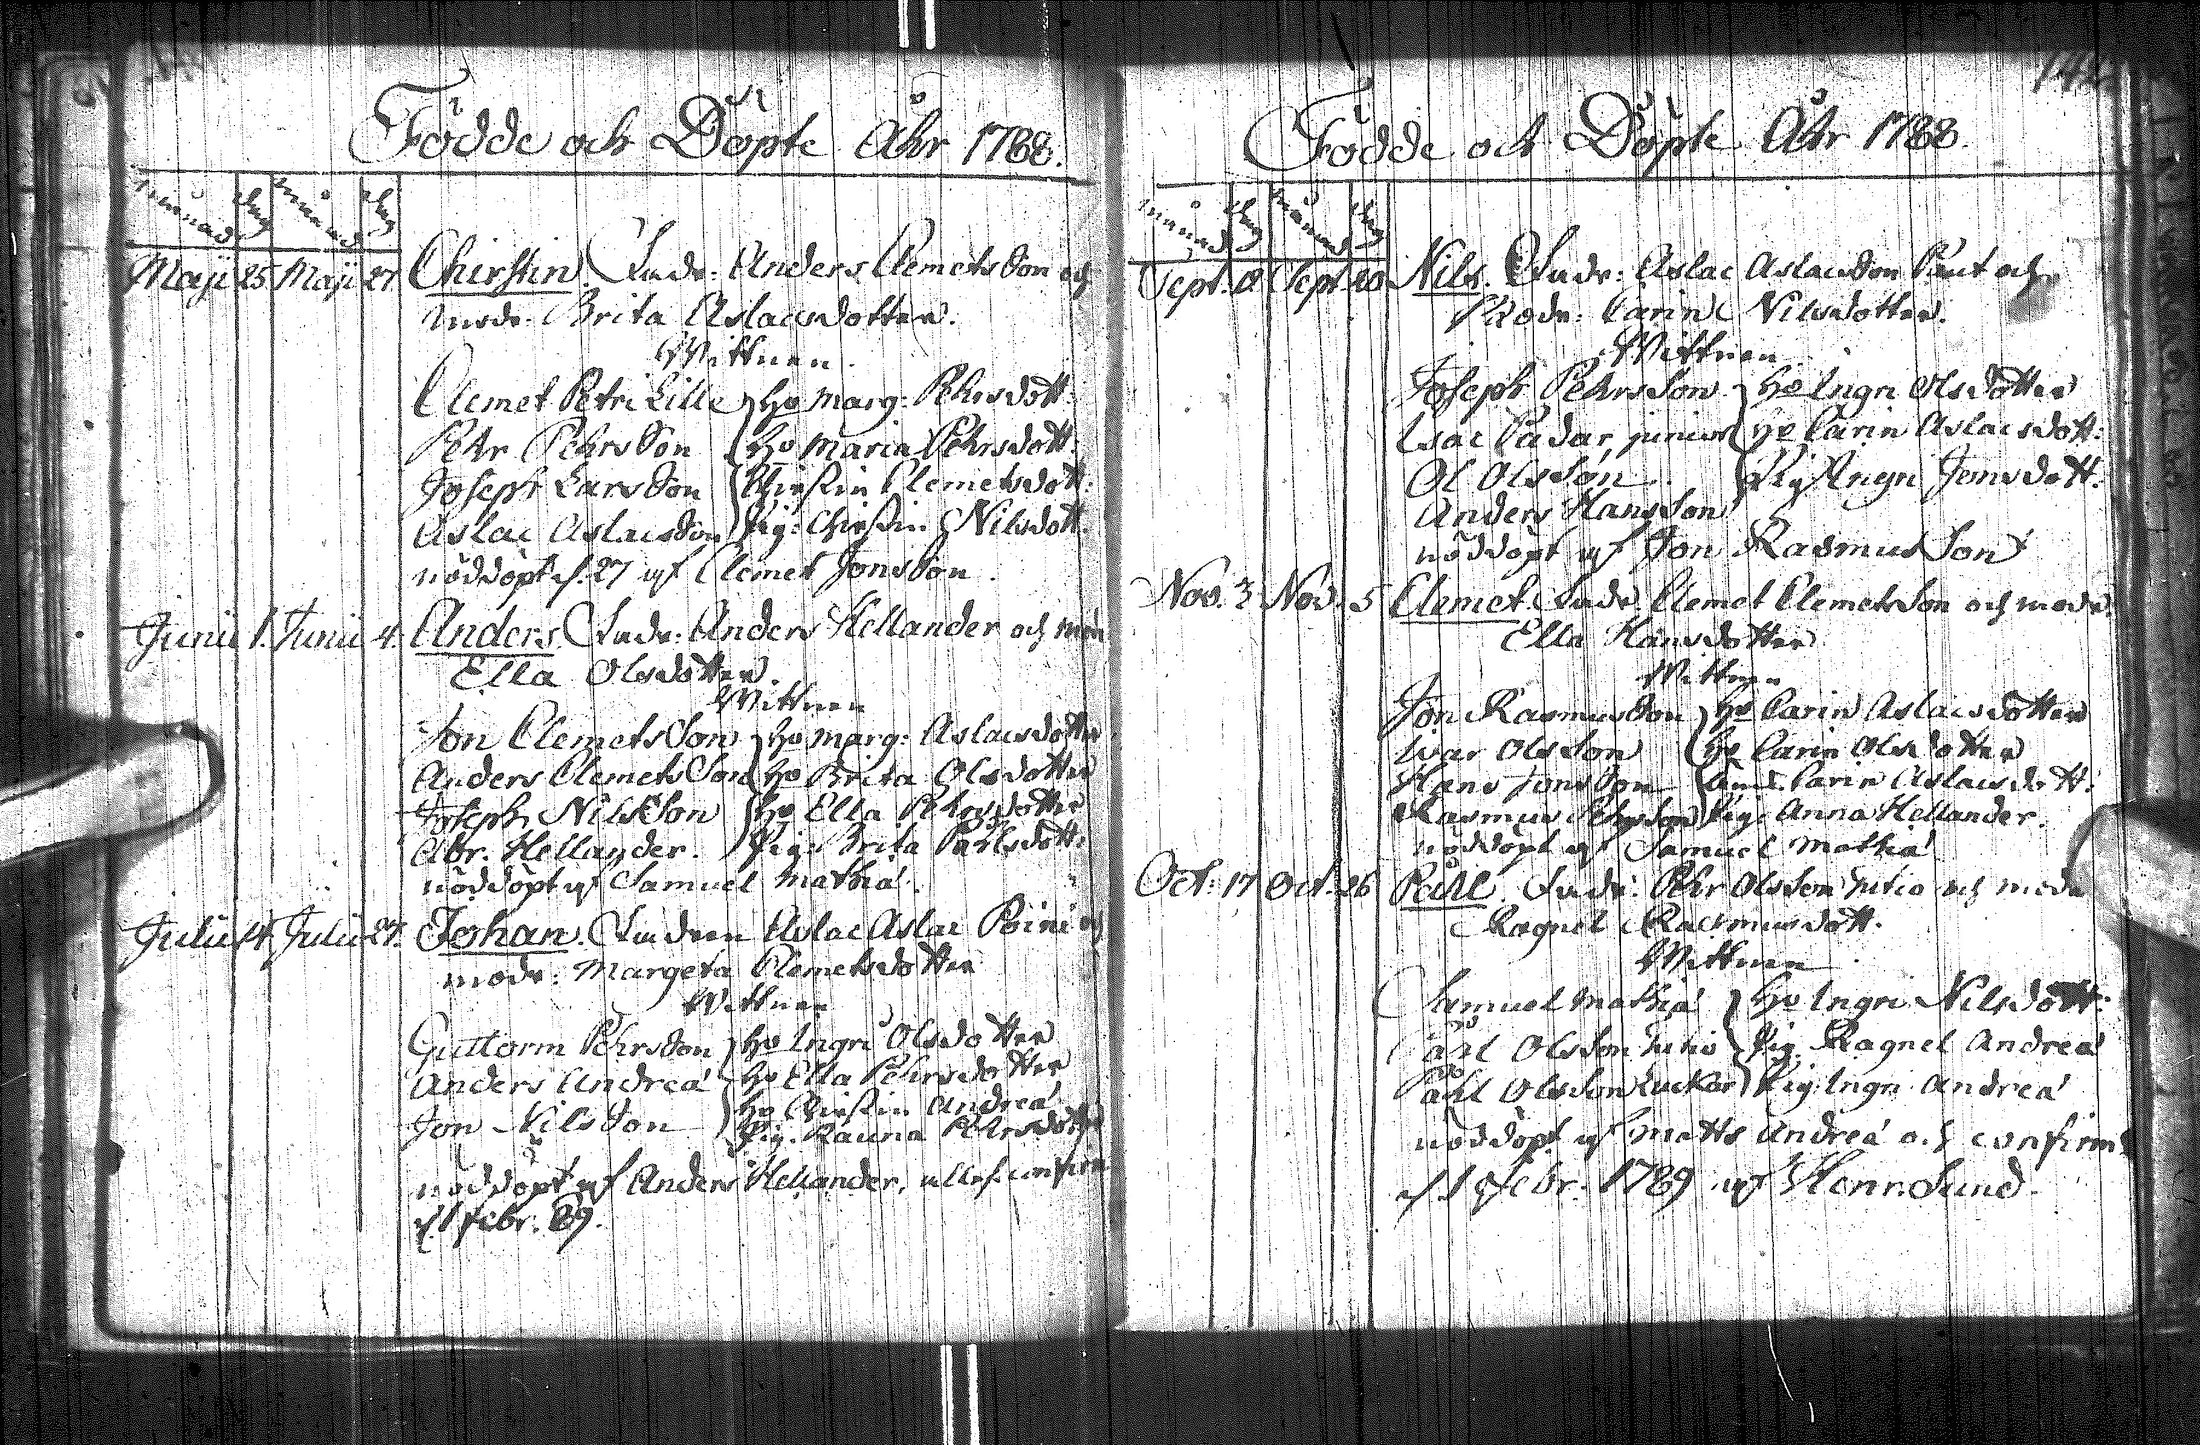 Födde och Döpte Åhr 1788.
månad dag månad dag
Maji 25 Maji 27 Chirstin. Fadr: Anders Clemetsson och
modr: Brita Aslacsdotter.
Wittnen.
Clemet Petri Lille Ho Marg: Pehrsdott:
Pehr Pehrsson Ho Maria Pehrsdott:
Joseph Larsson Chirstin Clemetsdott:
Aslac Aslacsson Pig: Chirstin Nilsdott:
nöddöpt d. 27 af Clemet Jonsson.
Junii 1. Junii 4. Anders. Fadr: Anders Hellander och mod
Ella Olsdotter.
Wittnen
Jon Clemetsson Ho Marg: Aslacsdotter
Anders Clemetsson Ho Brita Olsdotter
Joseph Nilsson Ho Ella Pehrsdotter
Abr. Hellander. Pig: Brita Påhlsdott:
nöddöpt af Samuel Mathiæ.
Julii 14 Julii 27. Johan. Fadren Aslac Aslac och
modr: Margeta Clemetsdotter
Wittnen
Guttorm Pehrsson Ho Ingri Olsdotter
Anders Andreæ Ho Ella Pehrsdotter
Jon Nilsson Ho Chirstin Andreæ
Pig. Rauna Pehrsdotter
nöddöpt af Anders Hellander, confirm
d. 1 Febr. 89.
Födde och Döpte Åhr 1788.
månad dag månad dag
Sept. 8 Sept. 20 Nils. Fadr: Aslac Aslacsson och
Modr: Carin Nilsdotter.
Wittnen
Joseph Pehrsson Ho Ingri Olsdotter
Isac Padar junior Ho Carin Aslacsdott:
Ol Olsson. Pig Ingri Jonsdott:
Anders Hansson
nöddöpt af Jon Rasmusson
Nov. 3 Nov. 5 Clemet. Fadr. Clemet Clemetsson och modr.
Ella Hansdotter
Wittnen
Jon Rasmusson Ho Carin Aslacsdotter
Ivar Olsson Ho Carin Olsdotter
Hans Jonsson Carin Aslacsdott:
Rasmus Pehrsson Pig: Anna Hellander.
nöddöpt af Samuel Mathiæ
Oct: 17 Oct. 26 Påhl. Fadr: Pehr Olsson och modr
Ragnel Rasmusdott.
Wittnen
Samuel Mathiæ Ho Ingri Nilsdott:
Påhl Olsson Pig. Ragnel Andreæ
Påhl Olsson Pig: Ingri Andreæ
nöddöpt af Matts Andreæ och confirm
d. 1 Febr. 1789 af Henr. Sund.